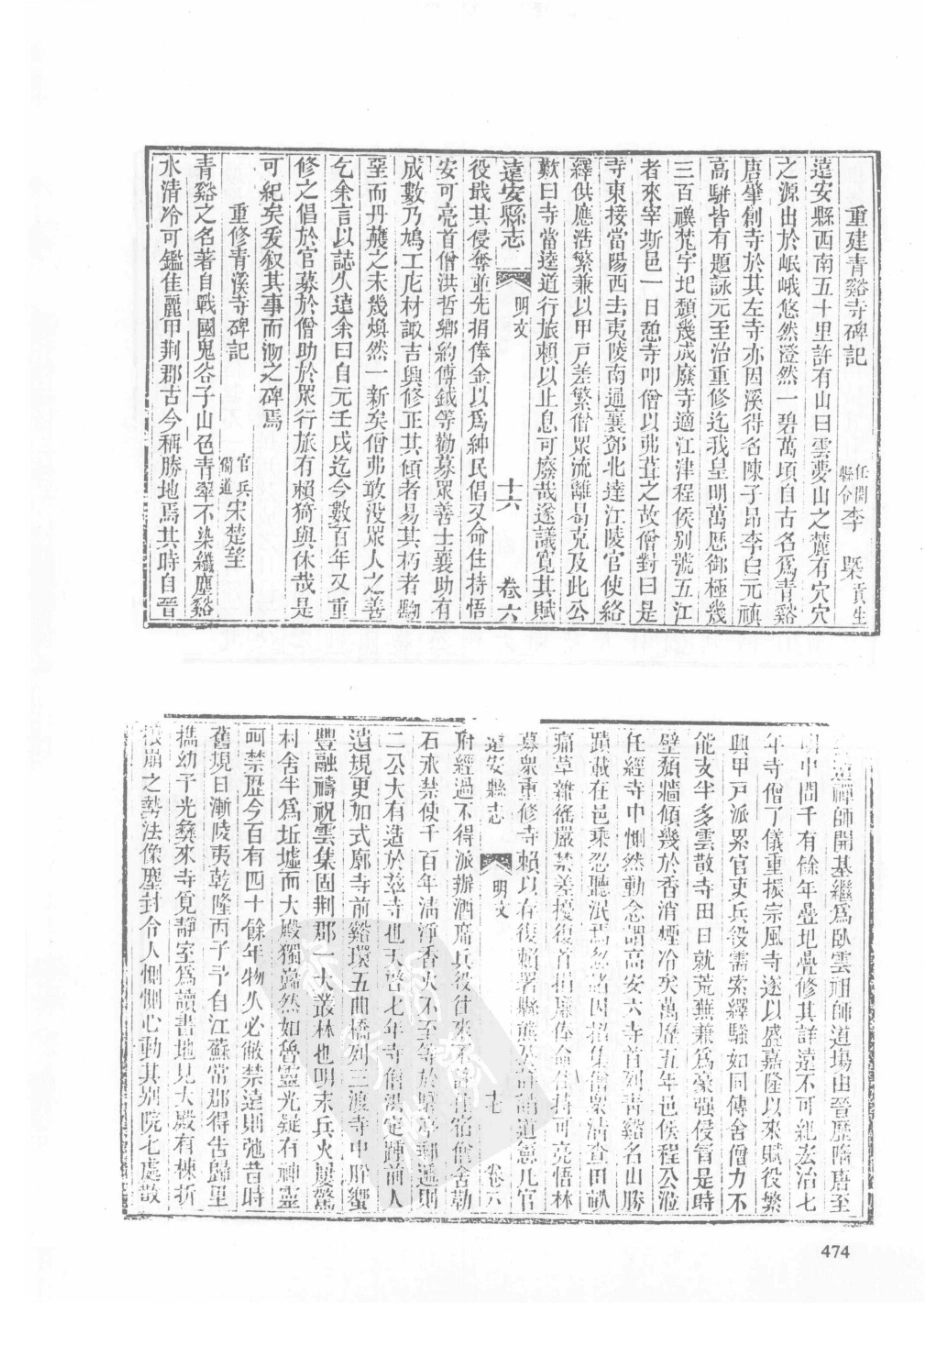 重建青谿寺碑記　任閩縣令 李　㮣 貢生
遠安縣西南五十里許有山曰雲夢山之麓有穴穴
之源出於岷峨悠然澄然一碧萬頃自古名爲青谿
唐肇創寺於其左寺亦因溪得名陳子昻李白元禛
高駢皆有題詠元至治重修迄我皇明萬厯御極幾
三百禩梵宇圮頽幾成廢寺適江津程侯别號五江
者來宰斯邑一日憩寺叩僧以弗葺之故僧對曰是
寺東接當陽西去夷陵南通襄鄧北達江陵官使絡
繹供應浩繁兼以甲戸差繁僧眾流離曷克及此公
歎曰寺當逵道行旅賴以止息可廢哉遂議寛其賦
遠安縣志　明文　十六　卷六
役戢其侵奪並先捐俸金以爲紳民倡又命住持悟
安可亮首僧洪哲鄉約傅鉞等勸募眾善士襄助有
成數乃鳩工庀材諏吉與修正其傾者易其朽者黝
堊而丹雘之未幾煥然一新矣僧弗敢没眾人之善
乞余言以誌久遠余曰自元壬戌迄今數百年又重
修之倡於官募於僧助於眾行旅有賴猗與休哉是
可紀矣爰叙其事而泐之碑焉
重修青溪寺碑記　官兵獨道 宋楚望
青谿之名著自戰國鬼谷子山色青翠不染纖塵谿
水清冷可鑑佳麗甲荆郡古今稱勝地焉其時自晉
遠禪師開基繼爲臥雲祖師道塲由晉歷隋唐至
明中間千有餘年疊圮疊修其詳遠不可紀宏治七
年寺僧了儀重振宗風寺遂以盛嘉隆以來賦役繁
興甲戸派累官吏兵役需索繹騷如同傳舍僧力不
能支半多雲散寺田日就荒蕪兼爲豪强侵冒是時
壁頽牆傾幾於香消煙冷矣萬厯五年邑侯程公涖
任經寺中惻然動念謂高安六寺首列青谿名山勝
蹟載在邑乘忍聽泯焉忽諸因招集僧衆清查田畝
痛草雜徭嚴禁差擾復首捐廉俸命住持可亮悟林
募衆重修寺賴以存復賴署縣熊
遠安縣志　明文　十七　卷六
附經過不得派辦酒席兵役往來不許住宿僧舍勒
石永禁使千百年清淨香火不至等於
二公大有造於茲寺也天啓七年寺僧洪定踵前人
遺規更加式廓寺前谿環五曲橋列三渡寺中肸蠁
豐融禱祝雲集固荆郡一大叢林也明末兵火屢驚
村舍半爲坵墟而大殿獨巋然如魯靈光疑有神靈
呵禁歷今百有四十餘年物久必敝禁遠則弛昔時
舊規日漸陵夷乾隆丙子予自江蘇常郡得告歸里
攜幼子光彝來寺覓靜室爲讀書地見大殿有棟折
榱崩之勢法像塵封令人惻惻心動其别院七處散
474